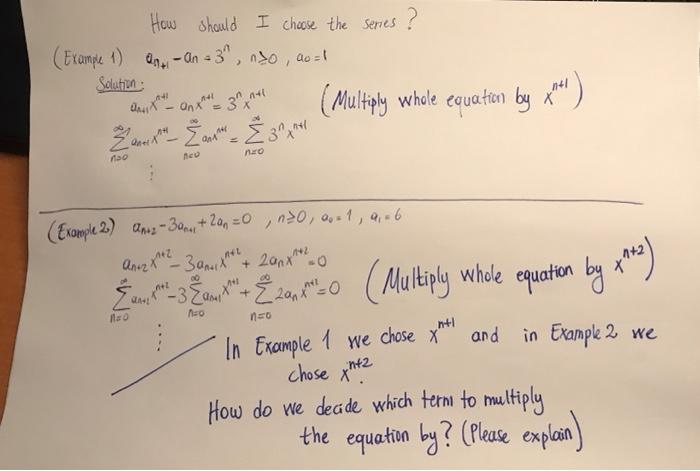 How should I choose the series?
(Example 1) aₙ₊₁ - aₙ = 3ⁿ, n≥0, a₀=1
Solution:
aₙ₊₁xⁿ⁺¹ - aₙxⁿ⁺¹ = 3ⁿxⁿ⁺¹ (Multiply whole equation by xⁿ⁺¹)
∞ ∞ ∞
Σ aₙ₊₁xⁿ⁺¹ - Σ aₙxⁿ⁺¹ = Σ 3ⁿxⁿ⁺¹
n=0 n=0 n=0
⋮
(Example 2) aₙ₊₂ - 3aₙ₊₁ + 2aₙ = 0, n≥0, a₀=1, a₁=6
aₙ₊₂xⁿ⁺² - 3aₙ₊₁xⁿ⁺² + 2aₙxⁿ⁺² = 0
∞ ∞ ∞
Σ aₙ₊₂xⁿ⁺² - 3 Σ aₙ₊₁xⁿ⁺² + Σ 2aₙxⁿ⁺² = 0 (Multiply whole equation by xⁿ⁺²)
n=0 n=0 n=0
⋮
In Example 1 we chose xⁿ⁺¹ and in Example 2 we
chose xⁿ⁺².
How do we decide which term to multiply
the equation by? (Please explain)